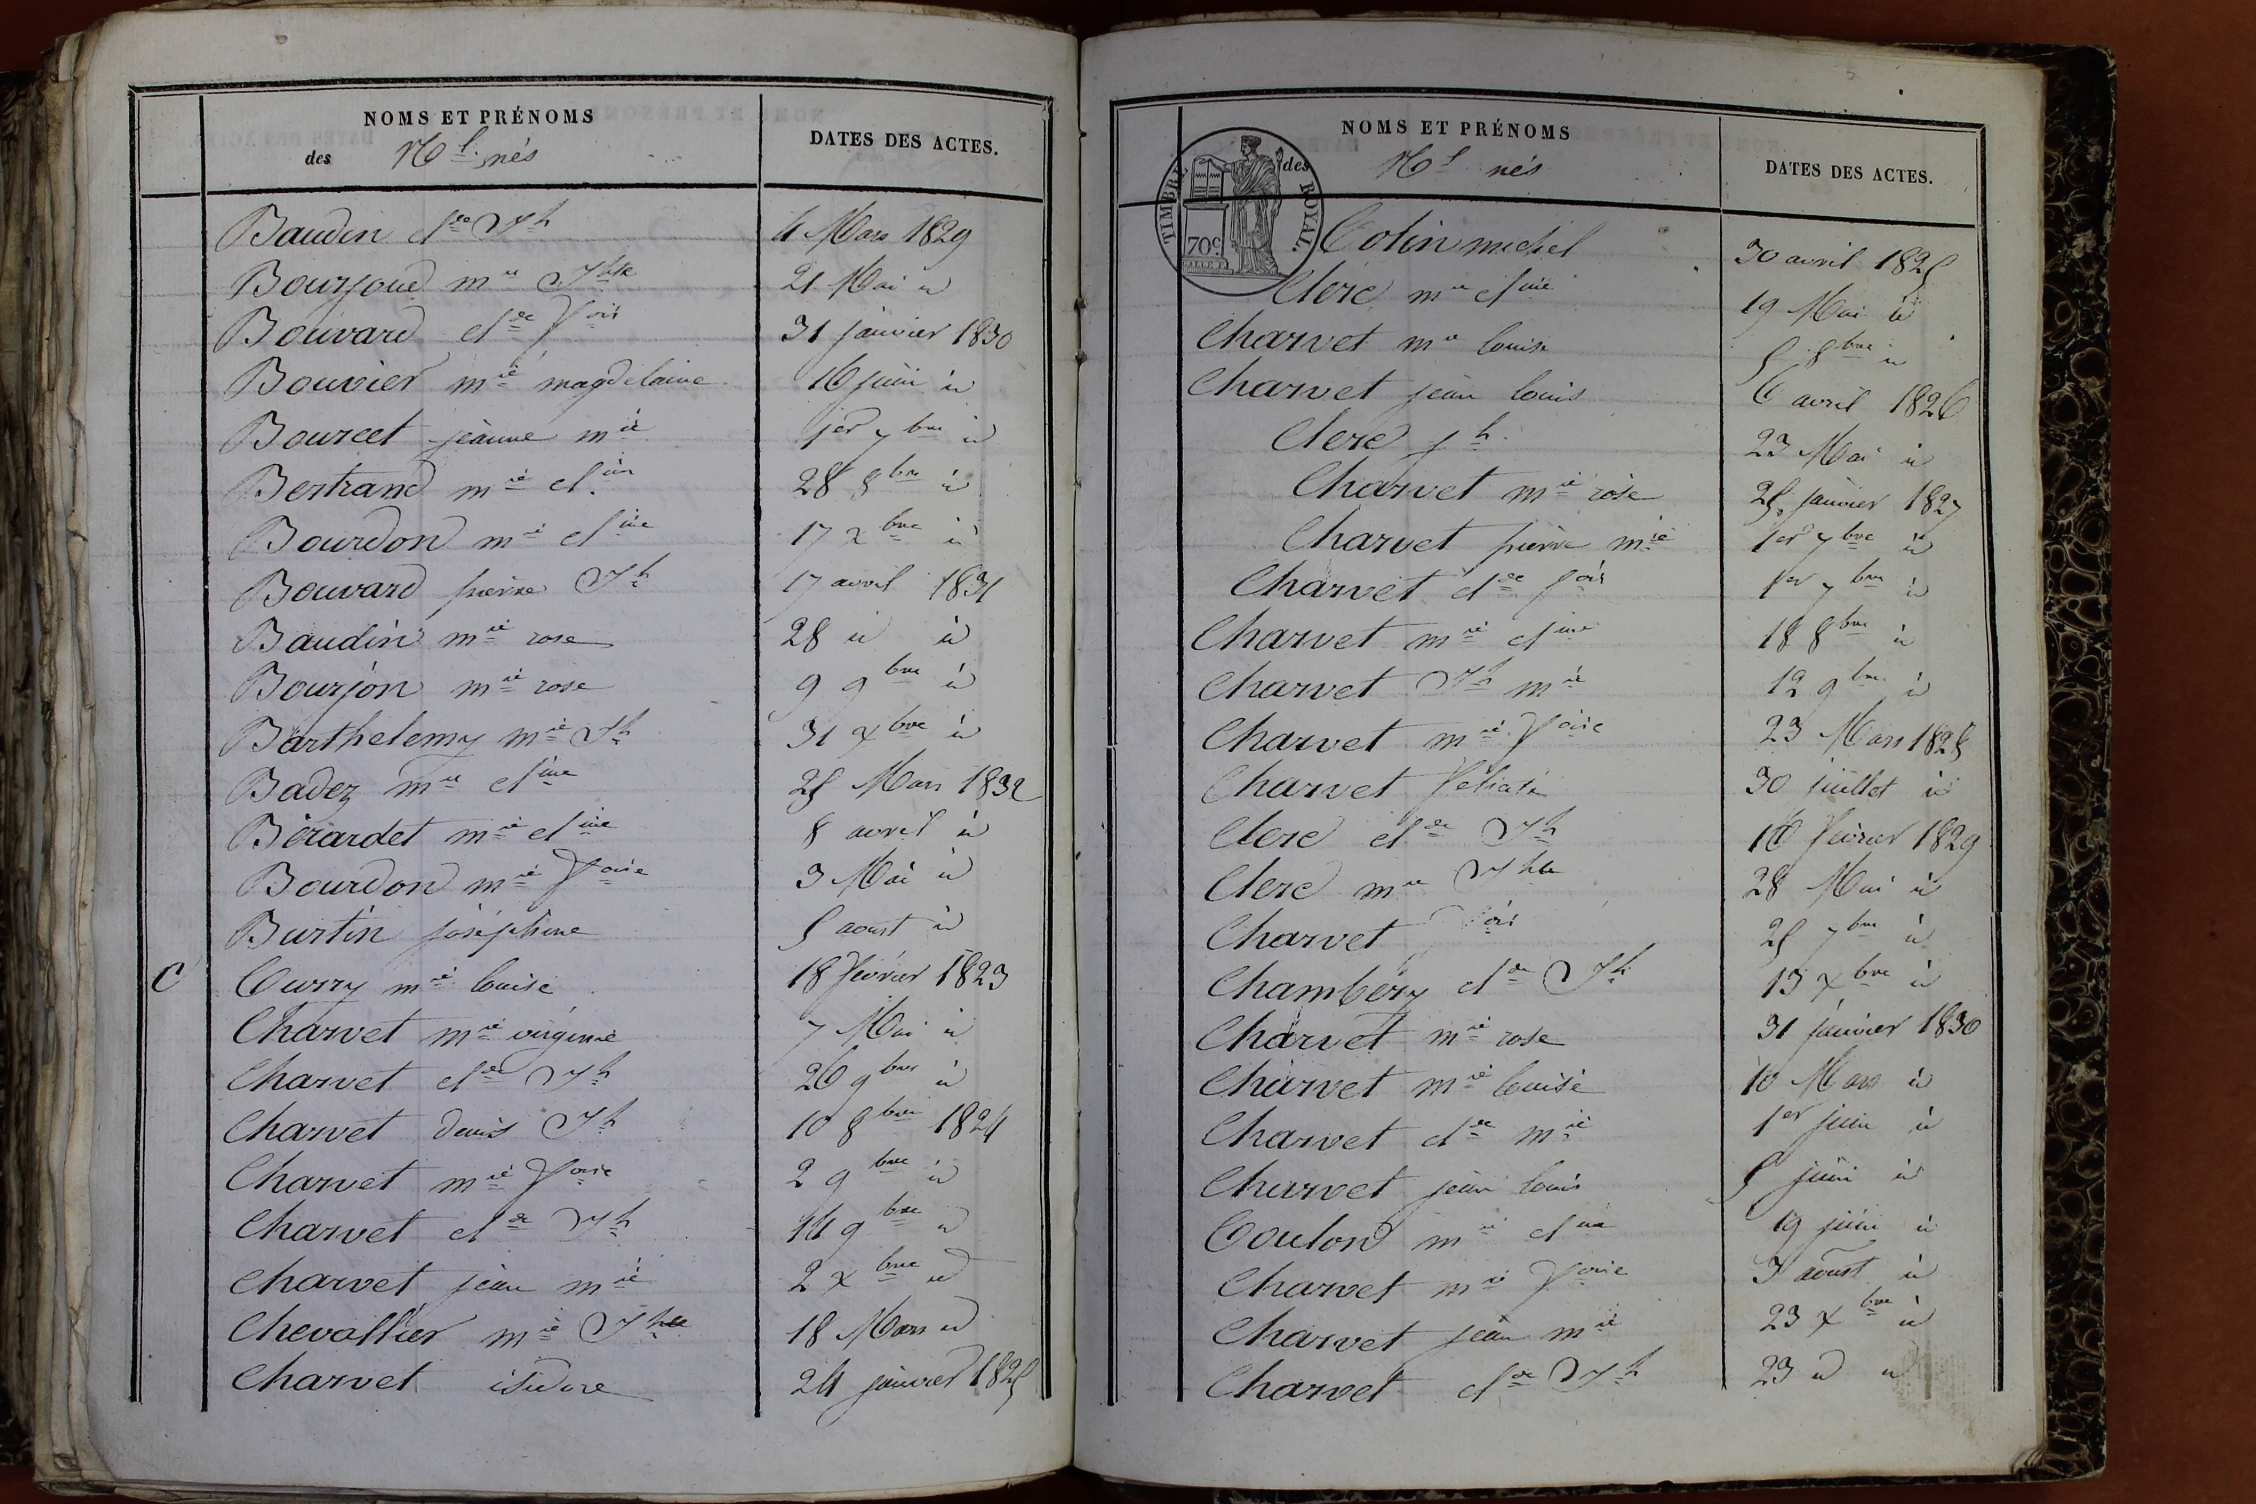 NOMS ET PRÉNOMS
des Nl. nés
DATES DES ACTES.
Baudin cl.de Jh 4 Mars 1829
Bourjoud mie Jhte 21 Mai id
Bouvard cl.de fois 31 janvier 1830
Bouvier mie magdelaine 16 juin id
Bourcet jeanne mie 1er 7bre id
Bertrand mie cl.ine 28 8bre id
Bourdon mie cl.ine 17 xbre id
Bouvard pierre Jh 17 avril 1831
Baudin mie rose 28 id id
Bourjon mie rose 9 9bre id
Barthelemy mie Jh 31 xbre id
Badez mie cl.ine 25 Mars 1832
Bérardet mie cl.ine 8 avril id
Bourdon mie foise 3 Mai id
Burtin joséphine 5 aoust id
C Curry mie louise 18 fevrier 1823
Charvet mie virginie 7 Mai id
Charvet cl.de Jh 26 9bre id
Charvet denis Jh 10 8bre 1824
Charvet mie foise 2 9bre id
Charvet cl.de Jh 14 9bre id
Charvet jean mie 2 xbre id
Chevallier mie Jhte 18 Mars id
Charvet isidore 24 janvier 1825
NOMS ET PRÉNOMS
des Nl nés
DATES DES ACTES.
TIMBRE ROYAL
70c.
Colin michel 30 avril 1825
Clerc mie cl.ine 19 Mai id
Charvet mie louise 5 8bre id
Charvet jean louis 6 avril 1826
Clerc jh 23 Mai id
Charvet mie rose 25 janvier 1827
Charvet pierre mie 1er 7bre id
Charvet cl.de fois 1er 7bre id
Charvet mie cl.ine 18 8bre id
Charvet Jh mie 12 9bre id
Charvet mie foise 23 Mars 1828
Charvet félicité 30 juillet id
Clerc cl.de Jh 16 février 1829
Clerc mie Jhte 28 Mai id
Charvet fois 25 7bre id
Chambéry cl.de Jh 13 xbre id
Charvet mie rose 31 janvier 1830
Charvet mie louise 10 Mars id
Charvet cl.de mie 1er juin id
Charvet jean louis 5 juin id
Coulon mie cl.ine 19 juin id
Charvet mie foise 3 aoust id
Charvet jean mie 23 xbre id
Charvet cl.de Jh 23 id id